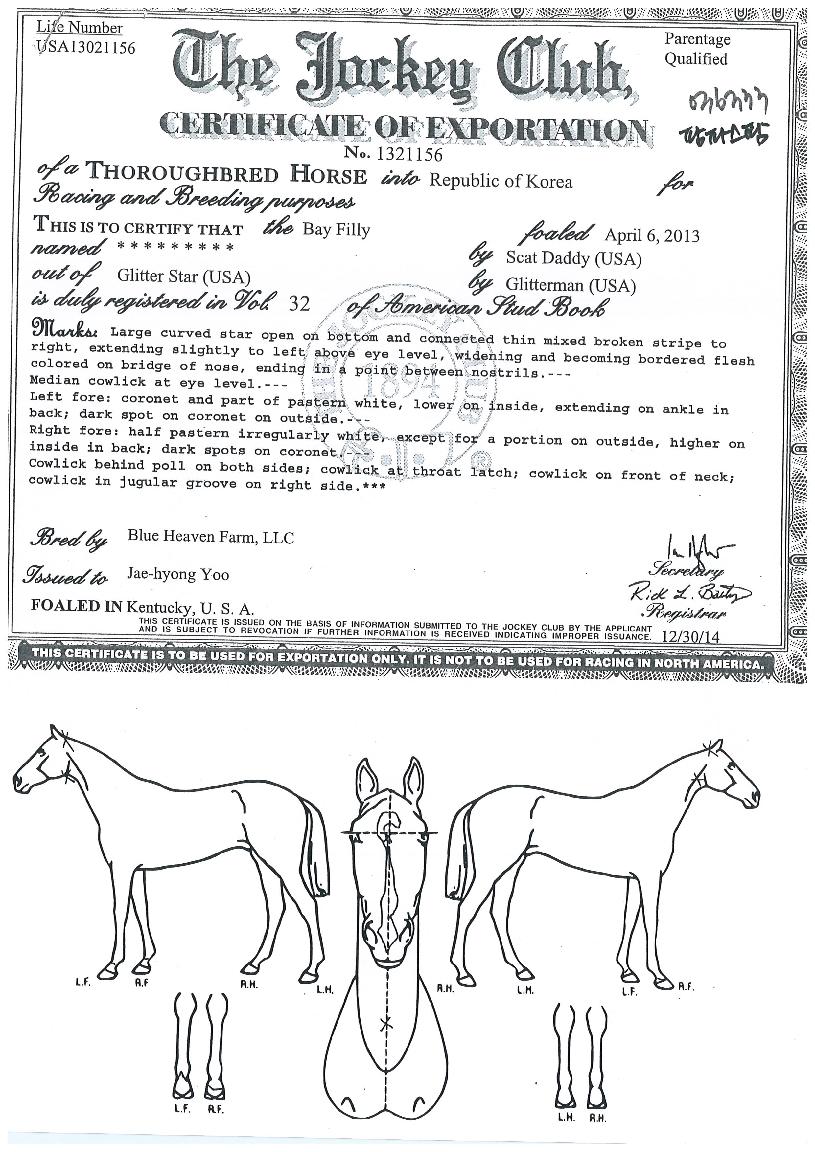 Life Number
USA13021156
Parentage
Qualified
The Jockey Club
CERTIFICATE OF EXPORTATION
No. 1321156
of a THOROUGHBRED HORSE into Republic of Korea for
Racing and Breeding purposes
THIS IS TO CERTIFY THAT the Bay Filly foaled April 6, 2013
named * * * * * * * * * by Scat Daddy (USA)
out of Glitter Star (USA) by Glitterman (USA)
is duly registered in Vol. 32 of American Stud Book
Marks: Large curved star open on bottom and connected thin mixed broken stripe to
right, extending slightly to left above eye level, widening and becoming bordered flesh
colored on bridge of nose, ending in a point between nostrils.---
Median cowlick at eye level.---
Left fore: coronet and part of pastern white, lower on inside, extending on ankle in
back; dark spot on coronet on outside.---
Right fore: half pastern irregularly white, except for a portion on outside, higher on
inside in back; dark spots on coronet.---
Cowlick behind poll on both sides; cowlick at throat latch; cowlick on front of neck;
cowlick in jugular groove on right side.***
1894
Bred by Blue Heaven Farm, LLC
Issued to Jae-hyong Yoo
Secretary
Rick L. Bailey
Registrar
FOALED IN Kentucky, U. S. A.
THIS CERTIFICATE IS ISSUED ON THE BASIS OF INFORMATION SUBMITTED TO THE JOCKEY CLUB BY THE APPLICANT
AND IS SUBJECT TO REVOCATION IF FURTHER INFORMATION IS RECEIVED INDICATING IMPROPER ISSUANCE. 12/30/14
THIS CERTIFICATE IS TO BE USED FOR EXPORTATION ONLY. IT IS NOT TO BE USED FOR RACING IN NORTH AMERICA.
L.F. R.F R.H. L.H. R.H. L.H. L.F. R.F.
L.F. R.F. L.H. R.H.